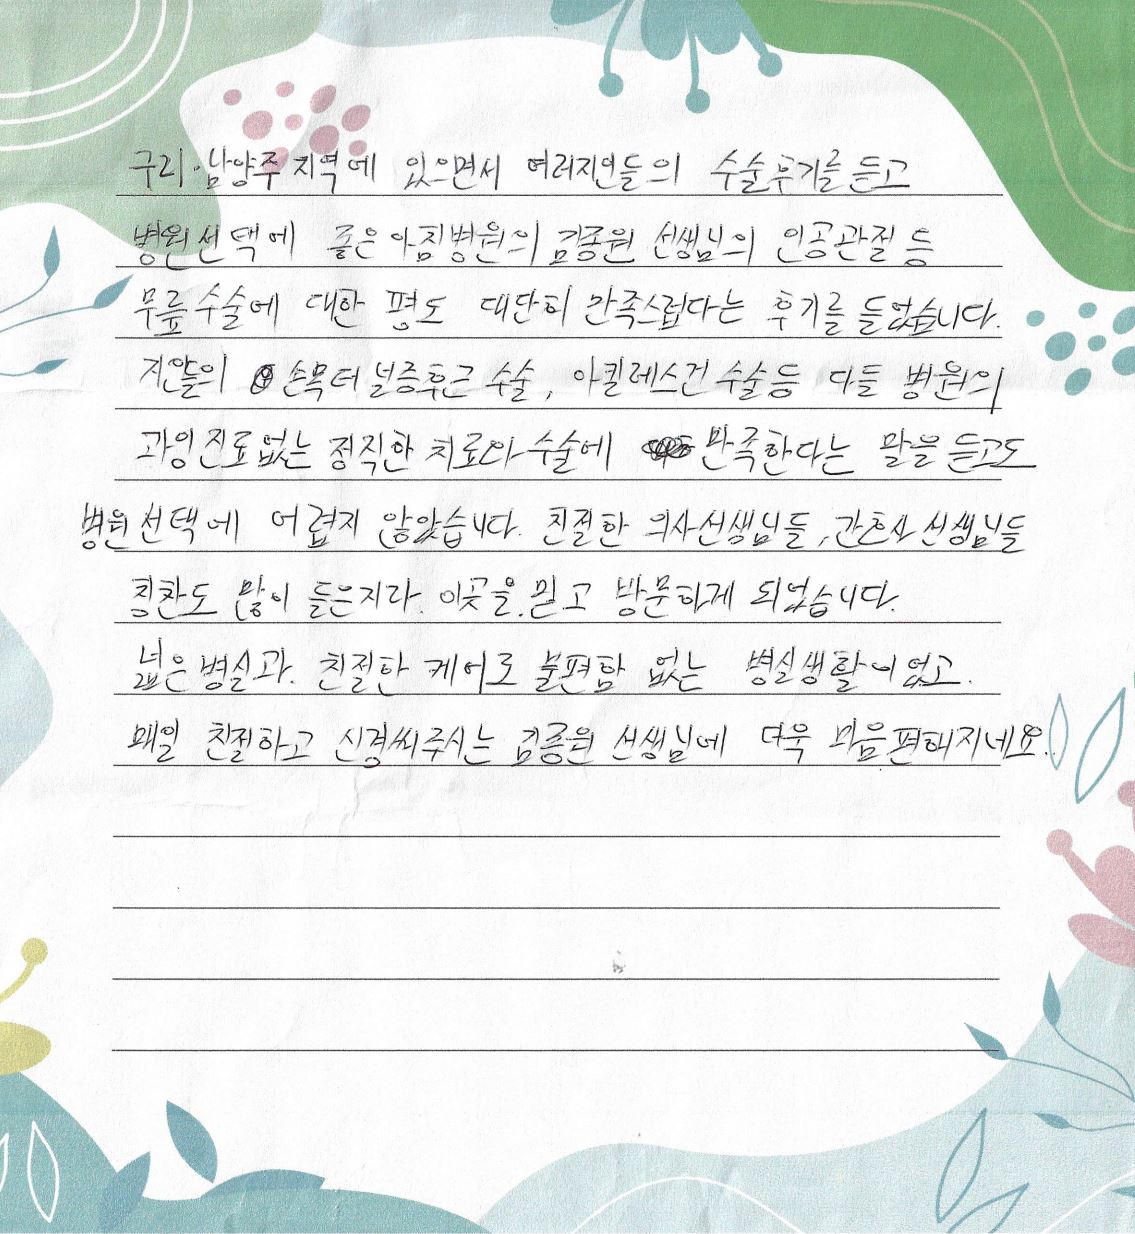 구리·남양주 지역에 있으면서 여러지인들의 수술후기를 듣고
병원선택에 좋은아침병원의 김종원 선생님의 인공관절 등
무릎수술에 대한 평도 대단히 만족스럽다는 후기를 들었습니다.
지인들의 손목터널증후근 수술, 아킬레스건 수술등 다들 병원의
과잉진료없는 정직한 치료와 수술에 만족한다는 말을 듣고도
병원선택에 어렵지 않았습니다. 친절한 의사선생님들, 간호사 선생님들
칭찬도 많이 들은지라. 이곳을 믿고 방문하게 되었습니다.
넓은병실과. 친절한 케어로 불편함 없는 병실생활이었고.
매일 친절하고 신경써주시는 김종원 선생님에 더욱 마음편해지네요.